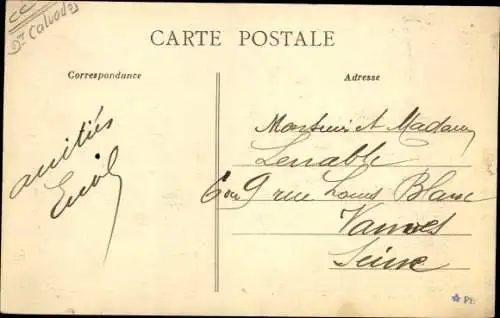 Dt Calvados
CARTE POSTALE
Correspondance
Adresse
amitiés
Emile
Monsieur et Madame
Lenable
6 ou 9 rue Louis Blanc
Vanves
Seine